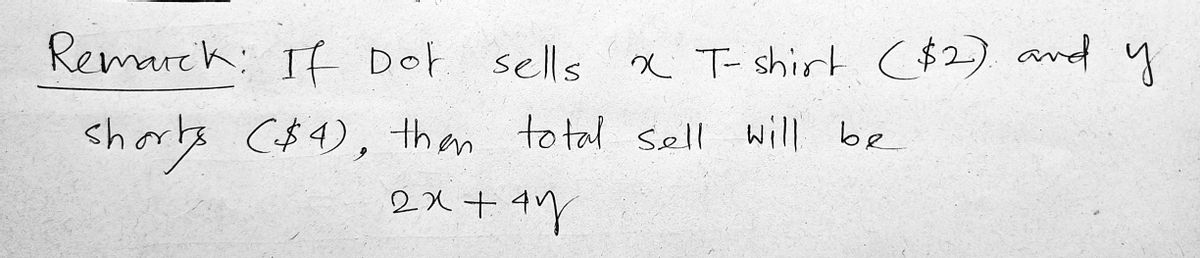 Remark: If Dot sells x T-shirt ($2) and y
shorts ($4), then total sell will be
2x + 4y